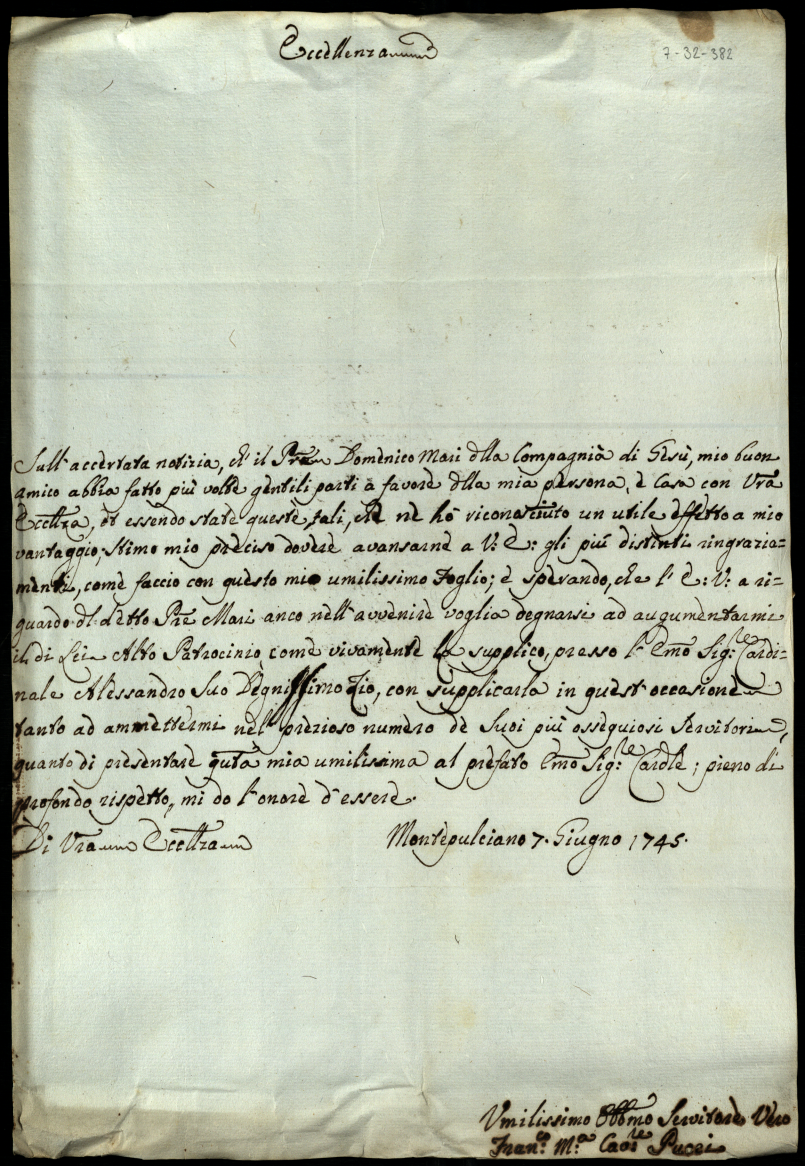 Eccellenza
7-32-382
Sull'accertata notizia, ch'il Pre Domenico Mari della Compagnia di Gesù, mio buon
amico abbia fatto più volte gentili parti à favore della mia persona, e Casa con Vra
Eccellza, et essendo state queste tali, che ne hò riconosciuto un utile effetto a mio
vantaggio; stimo mio preciso dovere avansarne a V: E: gli più distinti ringrazia=
menti, come faccio con questo mio umilissimo foglio; e sperando, che l'E: V: a ri=
guardo del detto Pre Mari anco nell'avvenire voglia degnarsi ad augumentarmi
il di Lei Alto Patrocinio come vivamente la supplico, presso l'Emo Sig:re Cardi=
nale Alessandro Suo Degnissimo Zio, con supplicarla in quest'occasione
tanto ad ammettermi nel prezioso numero de Suoi più ossequiosi Servitori,
quanto di presentare questa mia umilissima al prefato Emo Sig:re Cardle; pieno di
profondo rispetto, mi do l'onore d'essere.
Di Vra Eccellza Montepulciano 7. Giugno 1745.
Umilissimo Obbmo Servitore Vero
Fran:co M:a Cav:re Pucci